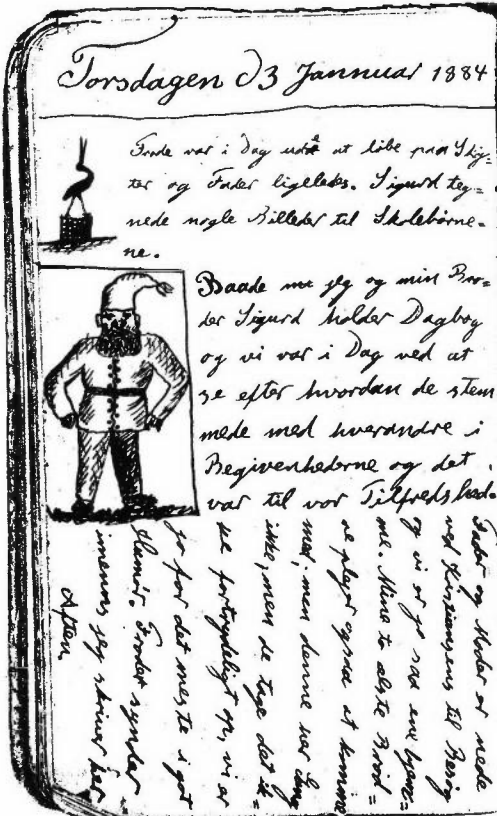 Torsdagen d 3 Januuar 1884
Frode var i Dag ude at løbe paa Skøj=
ter og Fader ligeledes. Sigurd teg=
nede nogle Billeder til Skolebørne=
ne.
Baade jeg og min Bro=
der Sigurd holder Dagbog
og vi var i Dag ved at
se efter hvordan de stem
mede med hverandre i
Begivenhederne og det
var til vor Tilfredshed.
Fader og Moder er nede
ved Kristiansens til Besøg
og vi er jo saa ene hjem=
me. Mine to ældste Brød=
re plejer ogsaa at komme
med; men denne
ikke, men de tage det ik=
ke fortrydeligt op, vi er
jo for det meste i godt
Humør. Frode synder
imens jeg skriver her
Aften.